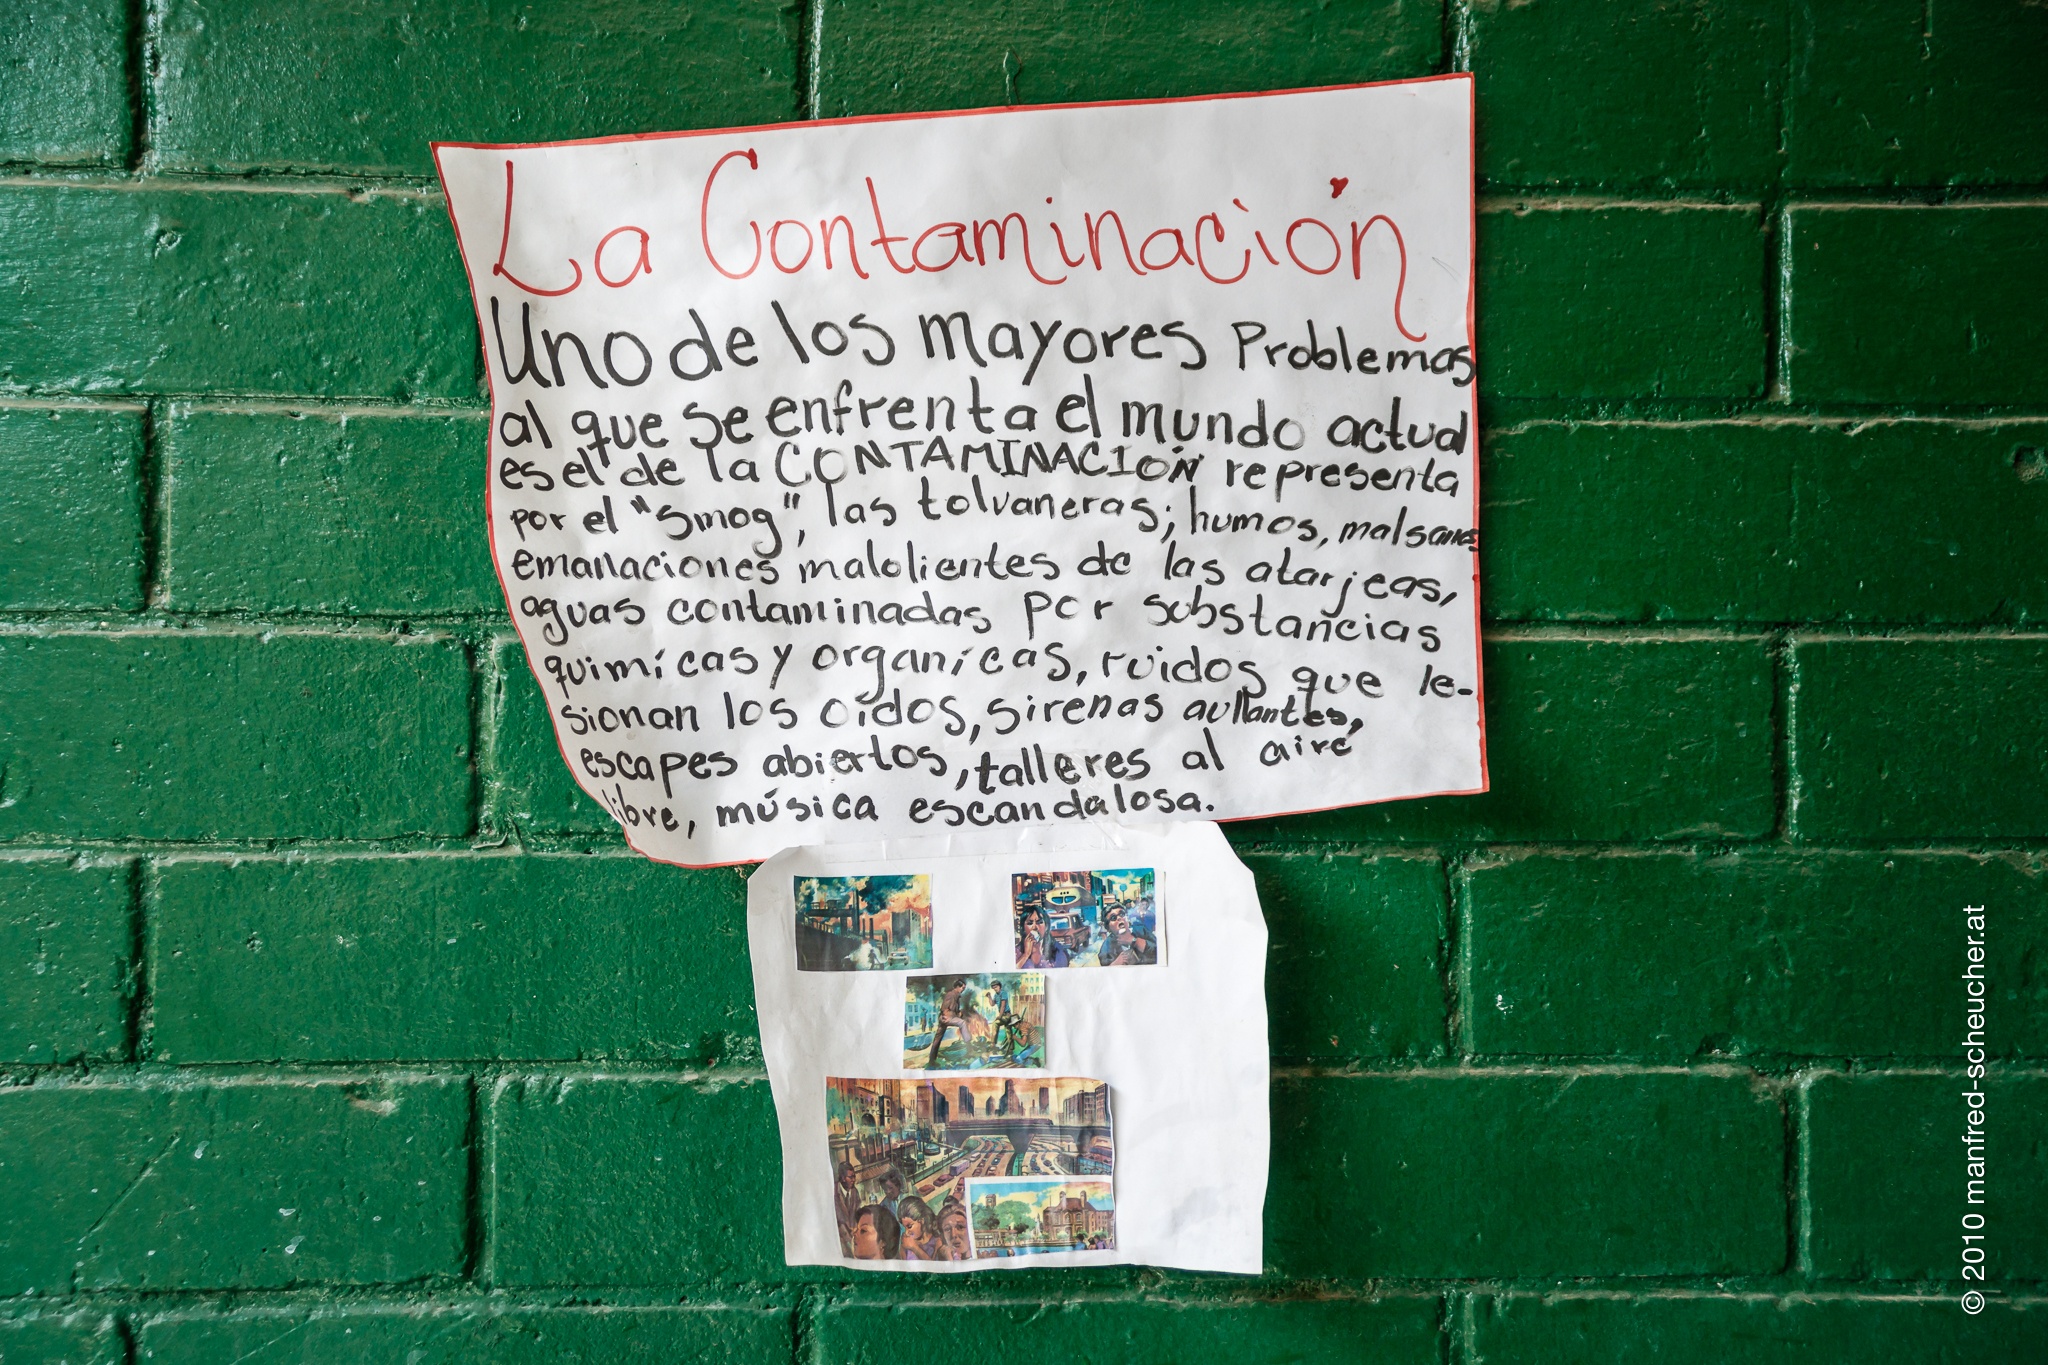 La Contaminación
Uno de los mayores Problemas
al que se enfrenta el mundo actual
es el de la CONTAMINACIÓN representa
por el "smog", las tolvaneras; humos, malsanos
emanaciones malolientes de las atarjeas,
aguas contaminadas por substancias
quimícas y organícas, ruidos que le-
sionan los oídos, sirenas aullantes,
escapes abiertos, talleres al aire
libre, música escandalosa.
© 2010 manfred-scheucher.at